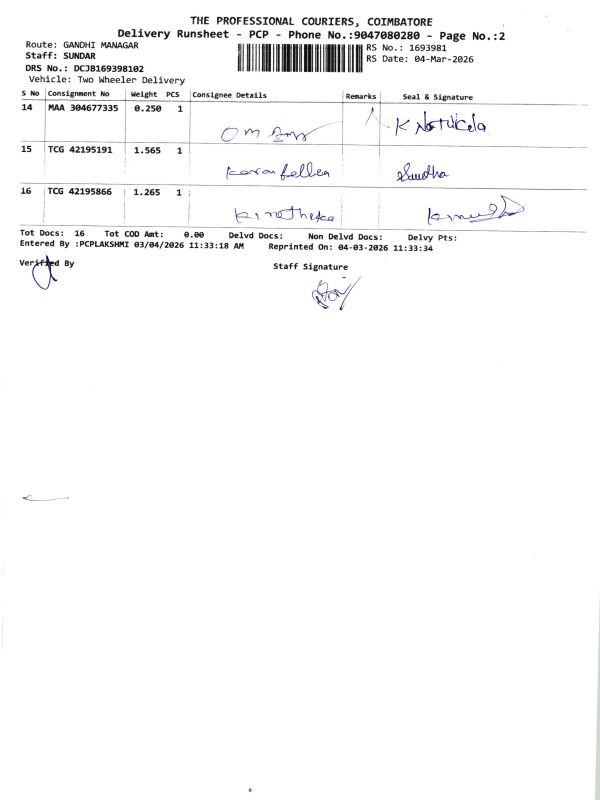 THE PROFESSIONAL COURIERS, COIMBATORE
Delivery Runsheet - PCP - Phone No.:9047080280 - Page No.:2
Route: GANDHI MANAGAR
RS No.: 1693981
Staff: SUNDAR
RS Date: 04-Mar-2026
DRS No.: DCJB169398102
Vehicle: Two Wheeler Delivery
S No Consignment No Weight PCS Consignee Details Remarks Seal & Signature
14 MAA 304677335 0.250 1
OM
15 TCG 42195191 1.565 1
Sumitha
16 TCG 42195866 1.265 1
Tot Docs: 16 Tot COD Amt: 0.00 Delvd Docs: Non Delvd Docs: Delvy Pts:
Entered By :PCPLAKSHMI 03/04/2026 11:33:18 AM Reprinted On: 04-03-2026 11:33:34
Verified By
Staff Signature